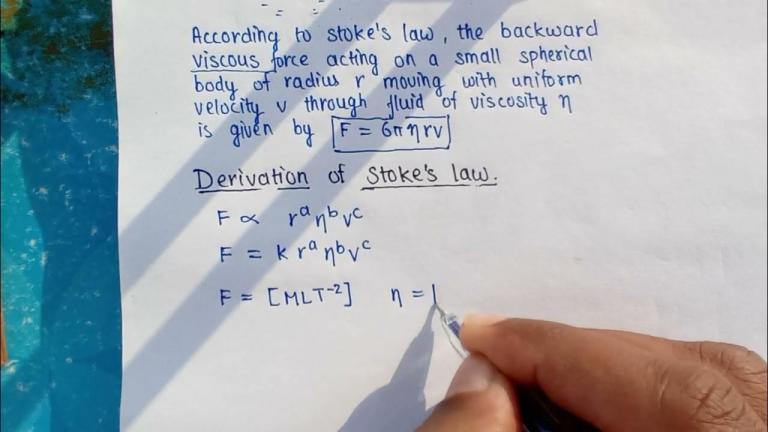 According to stoke's law, the backward
viscous force acting on a small spherical
body of radius r moving with uniform
velocity v through fluid of viscosity η
is given by F = 6πηrv
Derivation of stoke's law.
F ∝ rᵃηᵇvᶜ
F = k rᵃηᵇvᶜ
F = [MLT⁻²] η =